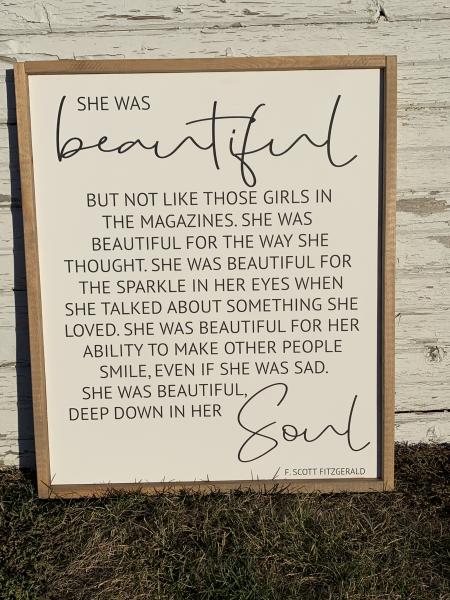 SHE WAS
beautiful
BUT NOT LIKE THOSE GIRLS IN
THE MAGAZINES. SHE WAS
BEAUTIFUL FOR THE WAY SHE
THOUGHT. SHE WAS BEAUTIFUL FOR
THE SPARKLE IN HER EYES WHEN
SHE TALKED ABOUT SOMETHING SHE
LOVED. SHE WAS BEAUTIFUL FOR HER
ABILITY TO MAKE OTHER PEOPLE
SMILE, EVEN IF SHE WAS SAD.
SHE WAS BEAUTIFUL,
DEEP DOWN IN HER
Soul
F. SCOTT FITZGERALD